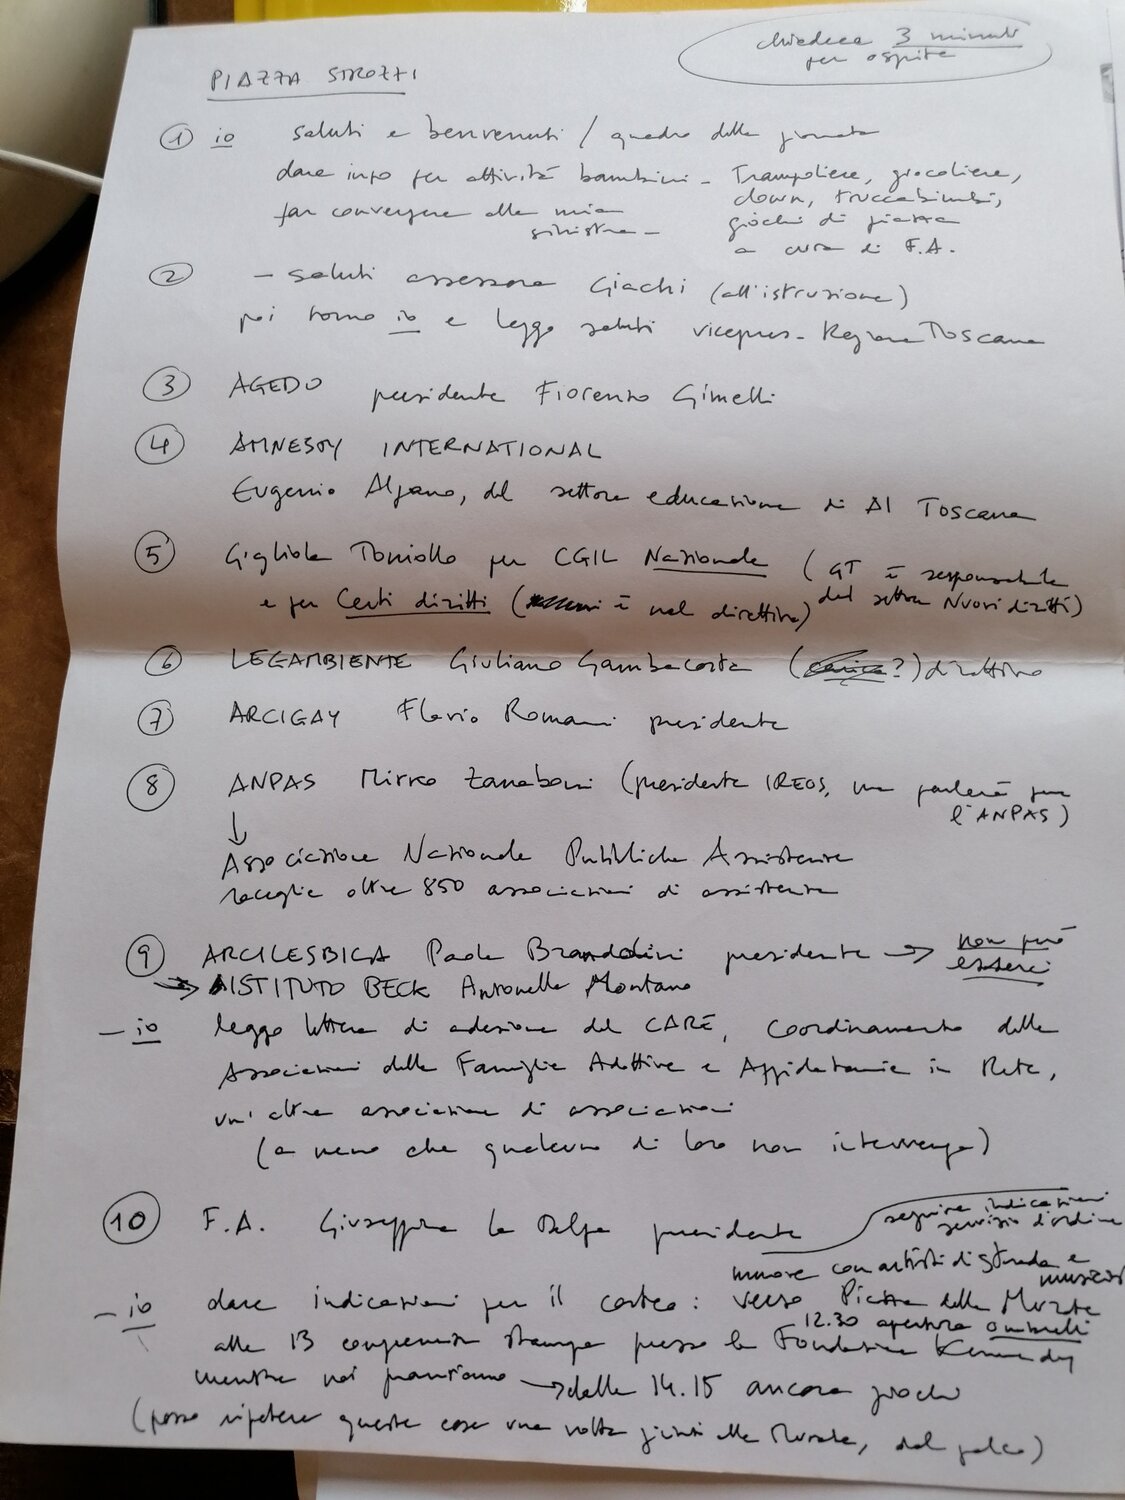 chiedere 3 minuti
per ospite
PIAZZA STROZZI
1 io saluti e benvenuti / quadro della giornata
dare info per attività bambini - Trampoliere, giocoliere,
clown, truccabimbi,
far convergere alla mia
sinistra -
giochi di piazza
a cura di F.A.
2 - saluti assessora Giachi (all'istruzione)
poi torno io e leggo saluti vicepres. Regione Toscana
3 AGEDO presidente Fiorenzo Gimelli
4 AMNESTY INTERNATIONAL
Eugenio Alfano, del settore educazione di AI Toscana
5 Gigliola Toniollo per CGIL Nazionale (GT è responsabile
del settore Nuovi diritti)
e per Certi diritti ( è nel direttivo)
6 LEGAMBIENTE Giuliano Gambacorta ( ?) direttivo
7 ARCIGAY Flavio Romani presidente
8 ANPAS Mirko Zanaboni (presidente IREOS, ma parlerà per
l'ANPAS)
↓
Associazione Nazionale Pubbliche Assistenze
raccoglie oltre 850 associazioni di assistenza
9 ARCILESBICA Paola Brandolini presidente → non può
esserci
→ ISTITUTO BECK Antonella Montano
- io leggo lettera di adesione del CARE, Coordinamento delle
Associazioni delle Famiglie Adottive e Affidatarie in Rete,
un'altra associazione di associazioni
(a meno che qualcuno di loro non intervenga)
10 F.A. Giuseppina La Delfa presidente
seguire indicazioni
servizio d'ordine
con artisti di strada e
musicisti
- io dare indicazioni per il corteo: verso Piazza delle Murate
12.30 apertura ombrelli
alle 13 conferenza stampa presso la Fondazione Kennedy
mentre noi pranziamo → dalle 14.15 ancora giochi
(posso ripetere queste cose una volta giunti alle Murate, dal palco)